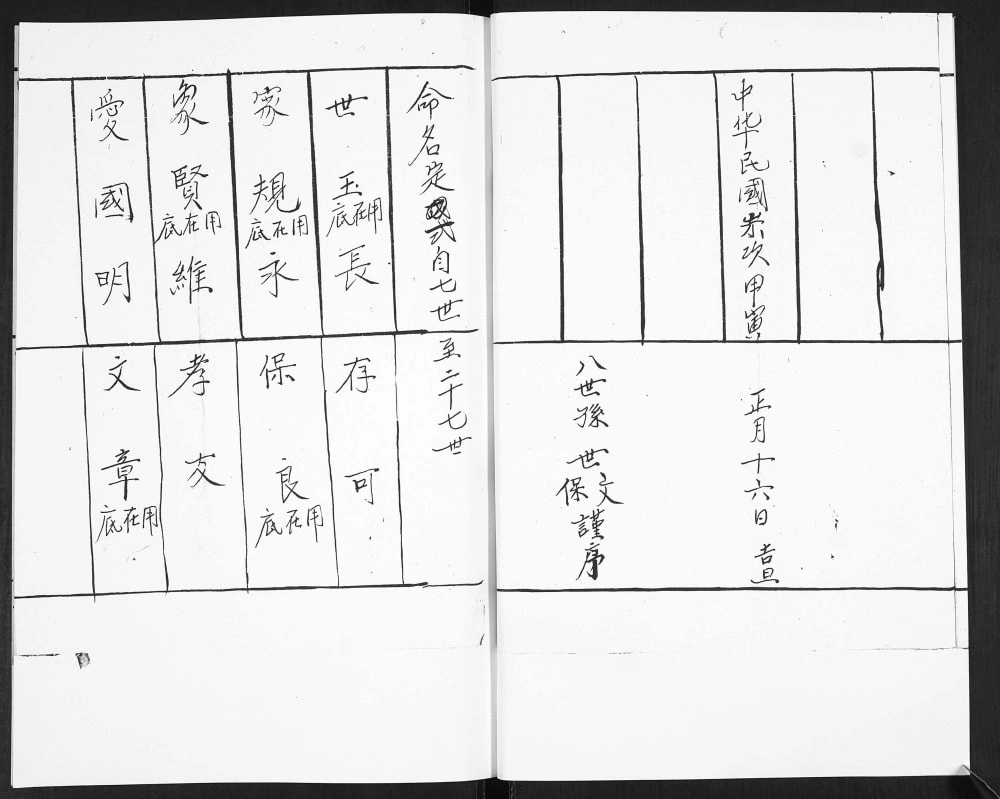 中华民國岁次甲寅 正月十六日 吉旦
八世孫 世文保 謹序
命名定式自七世至二十七世
世玉用在底長存可
家規用在底永保良用在底
象賢用在底維孝友
愛國明文章用在底